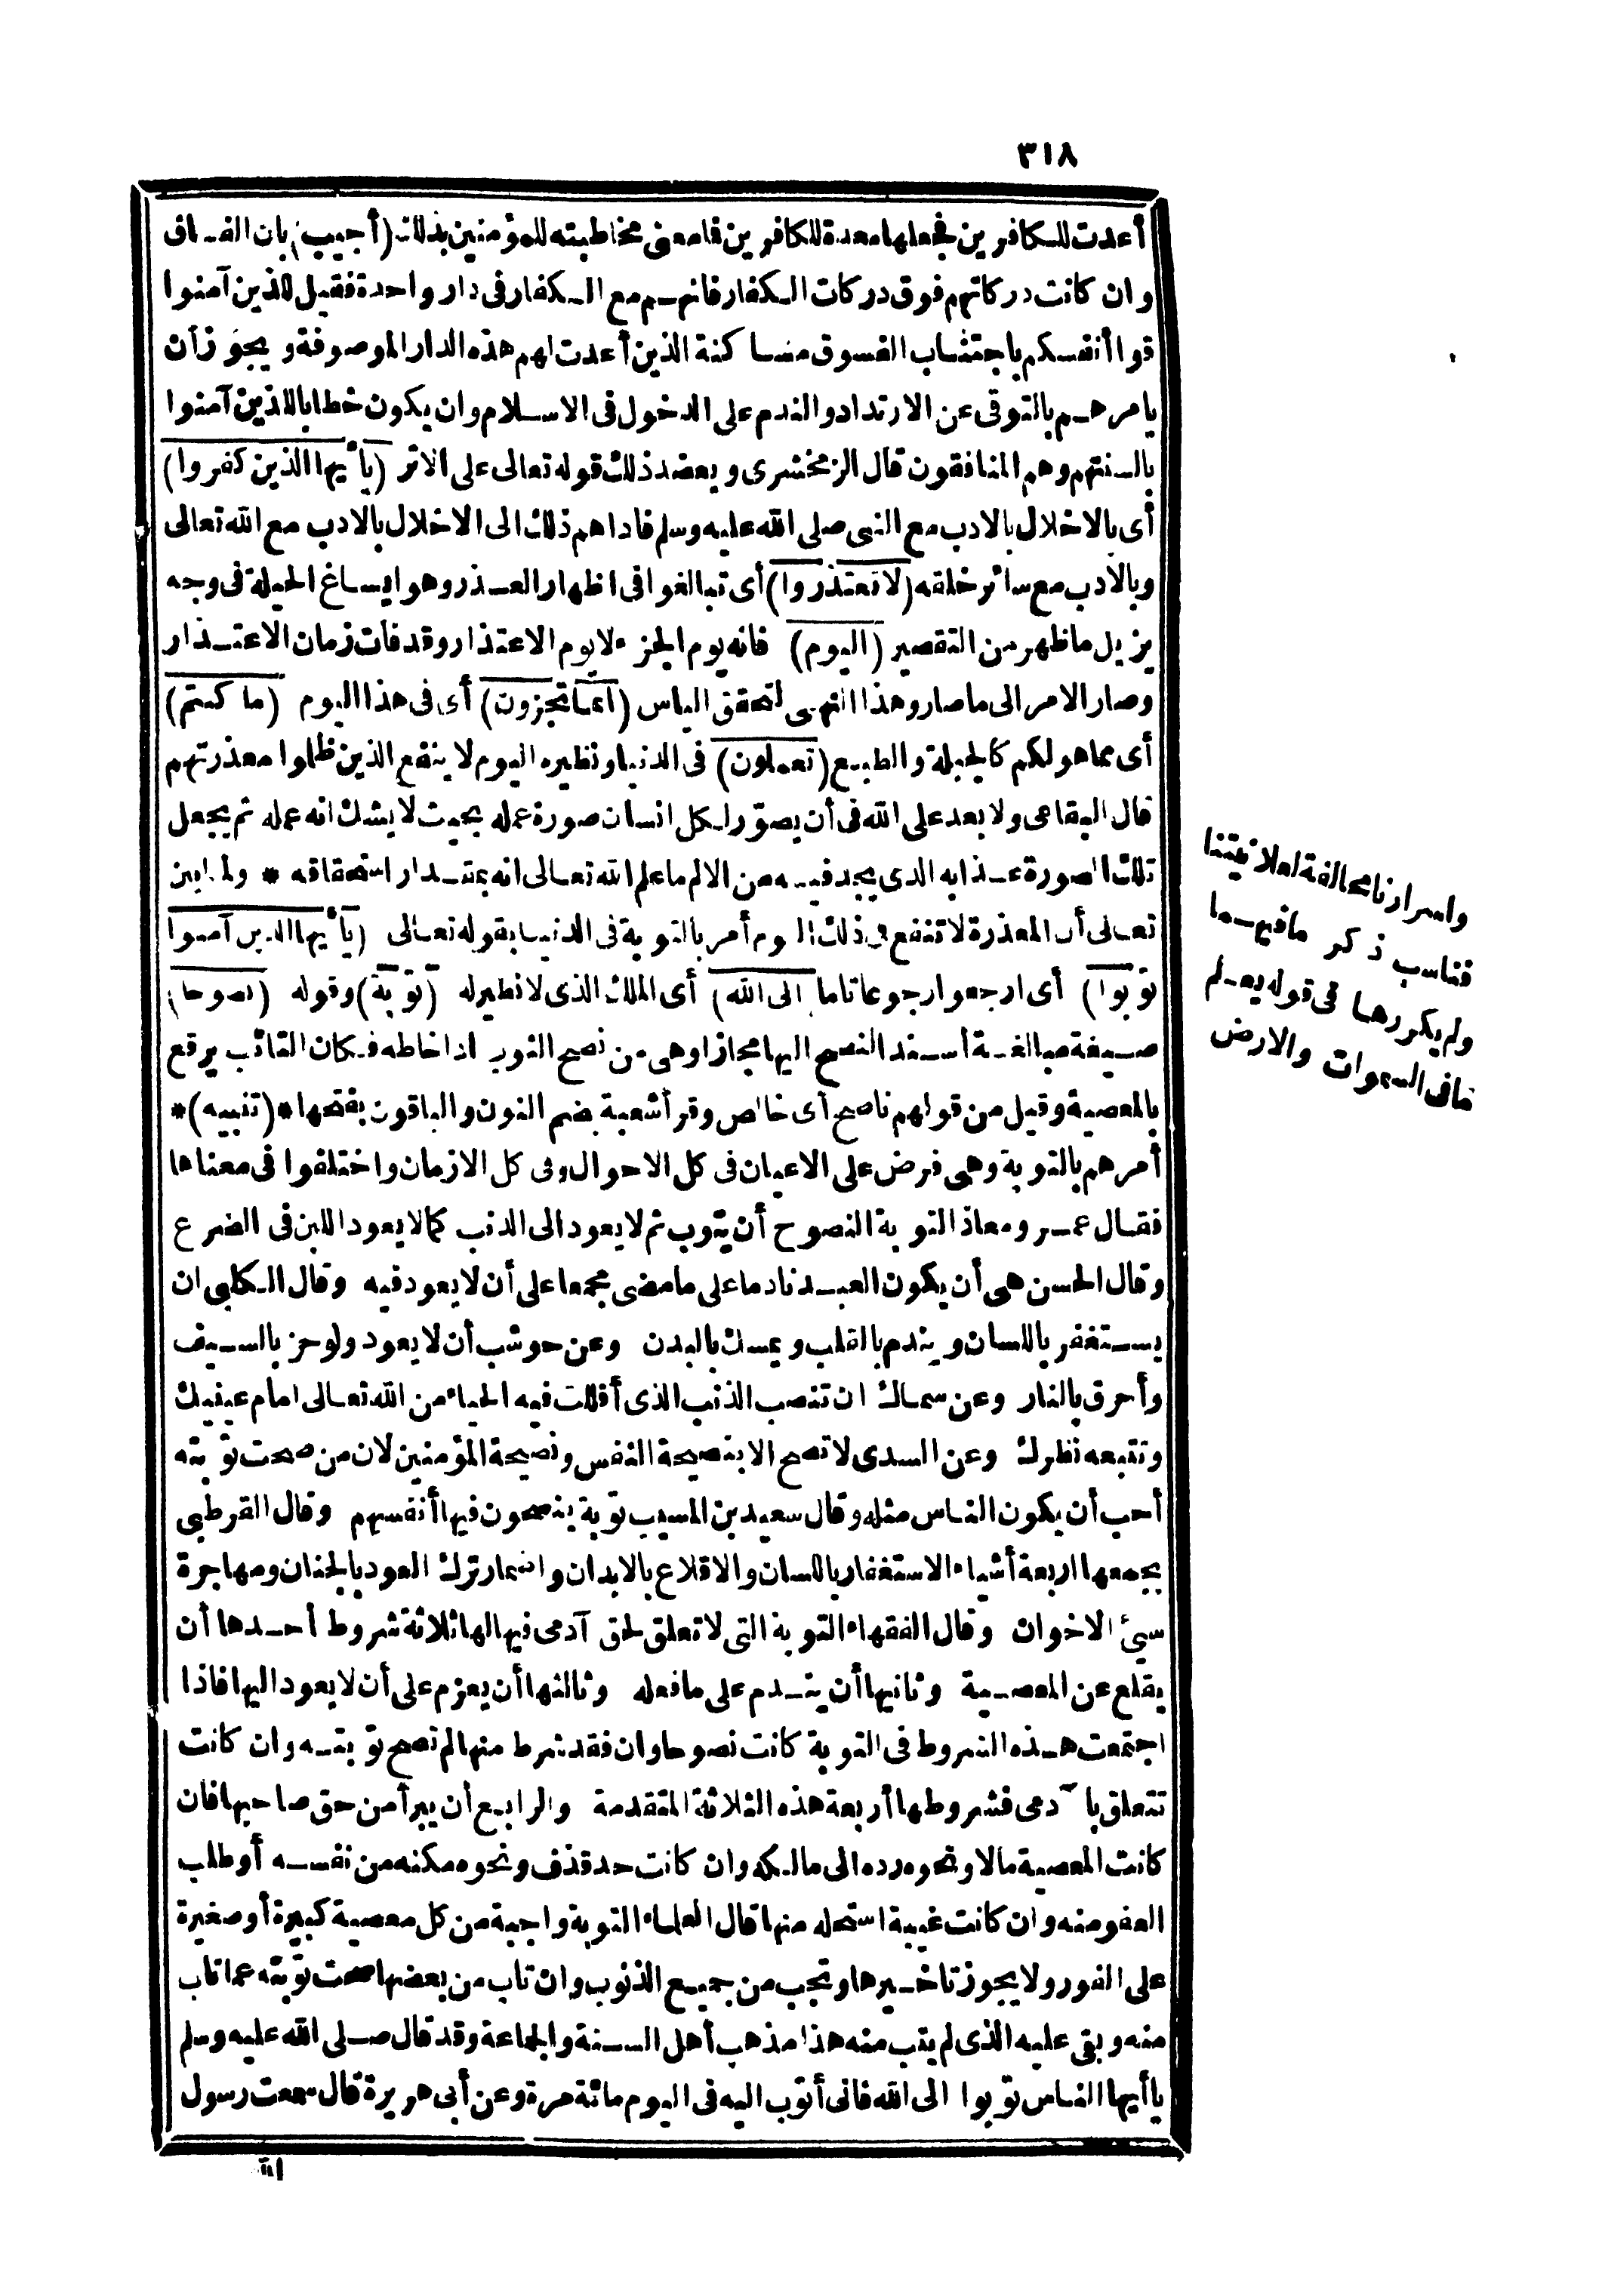 ٣١٨
أعدت للكافرين فجعلها معدة للكافرين فامعنى مخاطبته للمؤمنين بذلك (أجيب) بان الفساق
وان كانت دركاتهم فوق دركات الكفار فانهم مع الكفار فى دار واحدة فقيل للذين آمنوا
قوا أنفسكم باجتناب الفسوق مساكنة الذين أعدت لهم هذه الدار الموصوفة ويجوز أن
يامرهم بالتوقى عن الارتداد والندم على الدخول فى الاسلام وان يكون خطابا للذين آمنوا
بالسنتهم وهم المنافقون قال الزمخشرى ويعضد ذلك قوله تعالى على الاثر (يأيها الذين كفروا)
أى بالاخلال بالادب مع النبى صلى الله عليه وسلم فاداهم ذلك الى الاخلال بالادب مع الله تعالى
وبالادب مع سائر خلقه (لا تعتذروا) أى تبالغوا فى اظهار العذر وهو ايساغ الحيلة فى وجه
يزيل ما ظهر من التقصير (اليوم) فانه يوم الجزء لا يوم الاعتذار وقد فات زمان الاعتذار
وصار الامر الى ما صار وهذا النهى لتحقق الياس (انما تجزون) أى فى هذا اليوم (ما كنتم)
أى مما هو لكم كالجبلة والطبع (تعملون) فى الدنيا ونظيره اليوم لا ينفع الذين ظلموا معذرتهم
قال البقاعى ولا بعد على الله فى أن يصوّر لكل انسان صورة عمله بحيث لا يشك انه عمله ثم يجعل
تلك الصورة عذابه الذى يجد فيه من الالم ما علم الله تعالى انه بمقدار استحقاقه * ولما بين
تعالى أن المعذرة لا تنفع فى ذلك اليوم أمر بالتوبة فى الدنيا بقوله تعالى (يأيها الذين آمنوا
توبوا) أى ارجعوا رجوعا تاما (الى الله) أى الملك الذى لا نظير له (توبة) وقوله (نصوحا)
صيغة مبالغة أسند النصح اليها مجازا وهى من نصح الثوب اذا خاطه فكان التائب يرقع
بالمعصية وقيل من قولهم ناصح أى خالص وقرأ شعبة بضم النون والباقون بفتحها * (تنبيه) *
أمرهم بالتوبة وهى فرض على الاعيان فى كل الاحوال وفى كل الازمان واختلفوا فى معناها
فقال عمر ومعاذ التوبة النصوح أن يتوب ثم لا يعود الى الذنب كما لا يعود اللبن فى الضرع
وقال الحسن هى أن يكون العبد نادما على ما مضى مجمعا على أن لا يعود فيه وقال الكلبى ان
يستغفر باللسان ويندم بالقلب ويمسك بالبدن وعن حوشب أن لا يعود ولو حز بالسيف
وأحرق بالنار وعن سماك ان تنصب الذنب الذى أقللت فيه الحياء من الله تعالى امام عينيك
وتتبعه نظرك وعن السدى لا تصح الا بنصيحة النفس ونصيحة المؤمنين لان من صحت توبته
أحب أن يكون الناس مثله وقال سعيد بن المسيب توبة ينصحون فيها أنفسهم وقال القرطبى
يجمعها اربعة أشياء الاستغفار باللسان والاقلاع بالابدان واضمار ترك العود بالجنان ومهاجرة
سيئ الاخوان وقال الفقهاء التوبة التى لا تعلق لحق آدمى فيها لها ثلاثة شروط أحدها أن
يقلع عن المعصية وثانيها أن يندم على ما فعله وثالثها أن يعزم على أن لا يعود اليها فاذا
اجتمعت هذه الشروط فى التوبة كانت نصوحا وان فقد شرط منها لم تصح توبته وان كانت
تتعلق بآدمى فشروطها أربعة هذه الثلاثة المتقدمة والرابع أن يبرأ من حق صاحبها فان
كانت المعصية مالا ونحوه رده الى مالكه وان كانت حد قذف ونحوه مكنه من نفسه أو طلب
العفو منه وان كانت غيبة استحله منها قال العلماء التوبة واجبة من كل معصية كبيرة أو صغيرة
على الفور ولا يجوز تاخيرها وتجب من جميع الذنوب وان تاب من بعضها صحت توبته عما تاب
منه وبقى عليه الذى لم يتب منه هذا مذهب أهل السنة والجماعة وقد قال صلى الله عليه وسلم
يا أيها الناس توبوا الى الله فانى أتوب اليه فى اليوم مائة مرة وعن أبى هريرة قال سمعت رسول
الله
واسرارنا مخالفة لعلانيتنا
فناسب ذكر ما فيهما
ولم يكررها فى قوله يعلم
ما فى السموات والارض